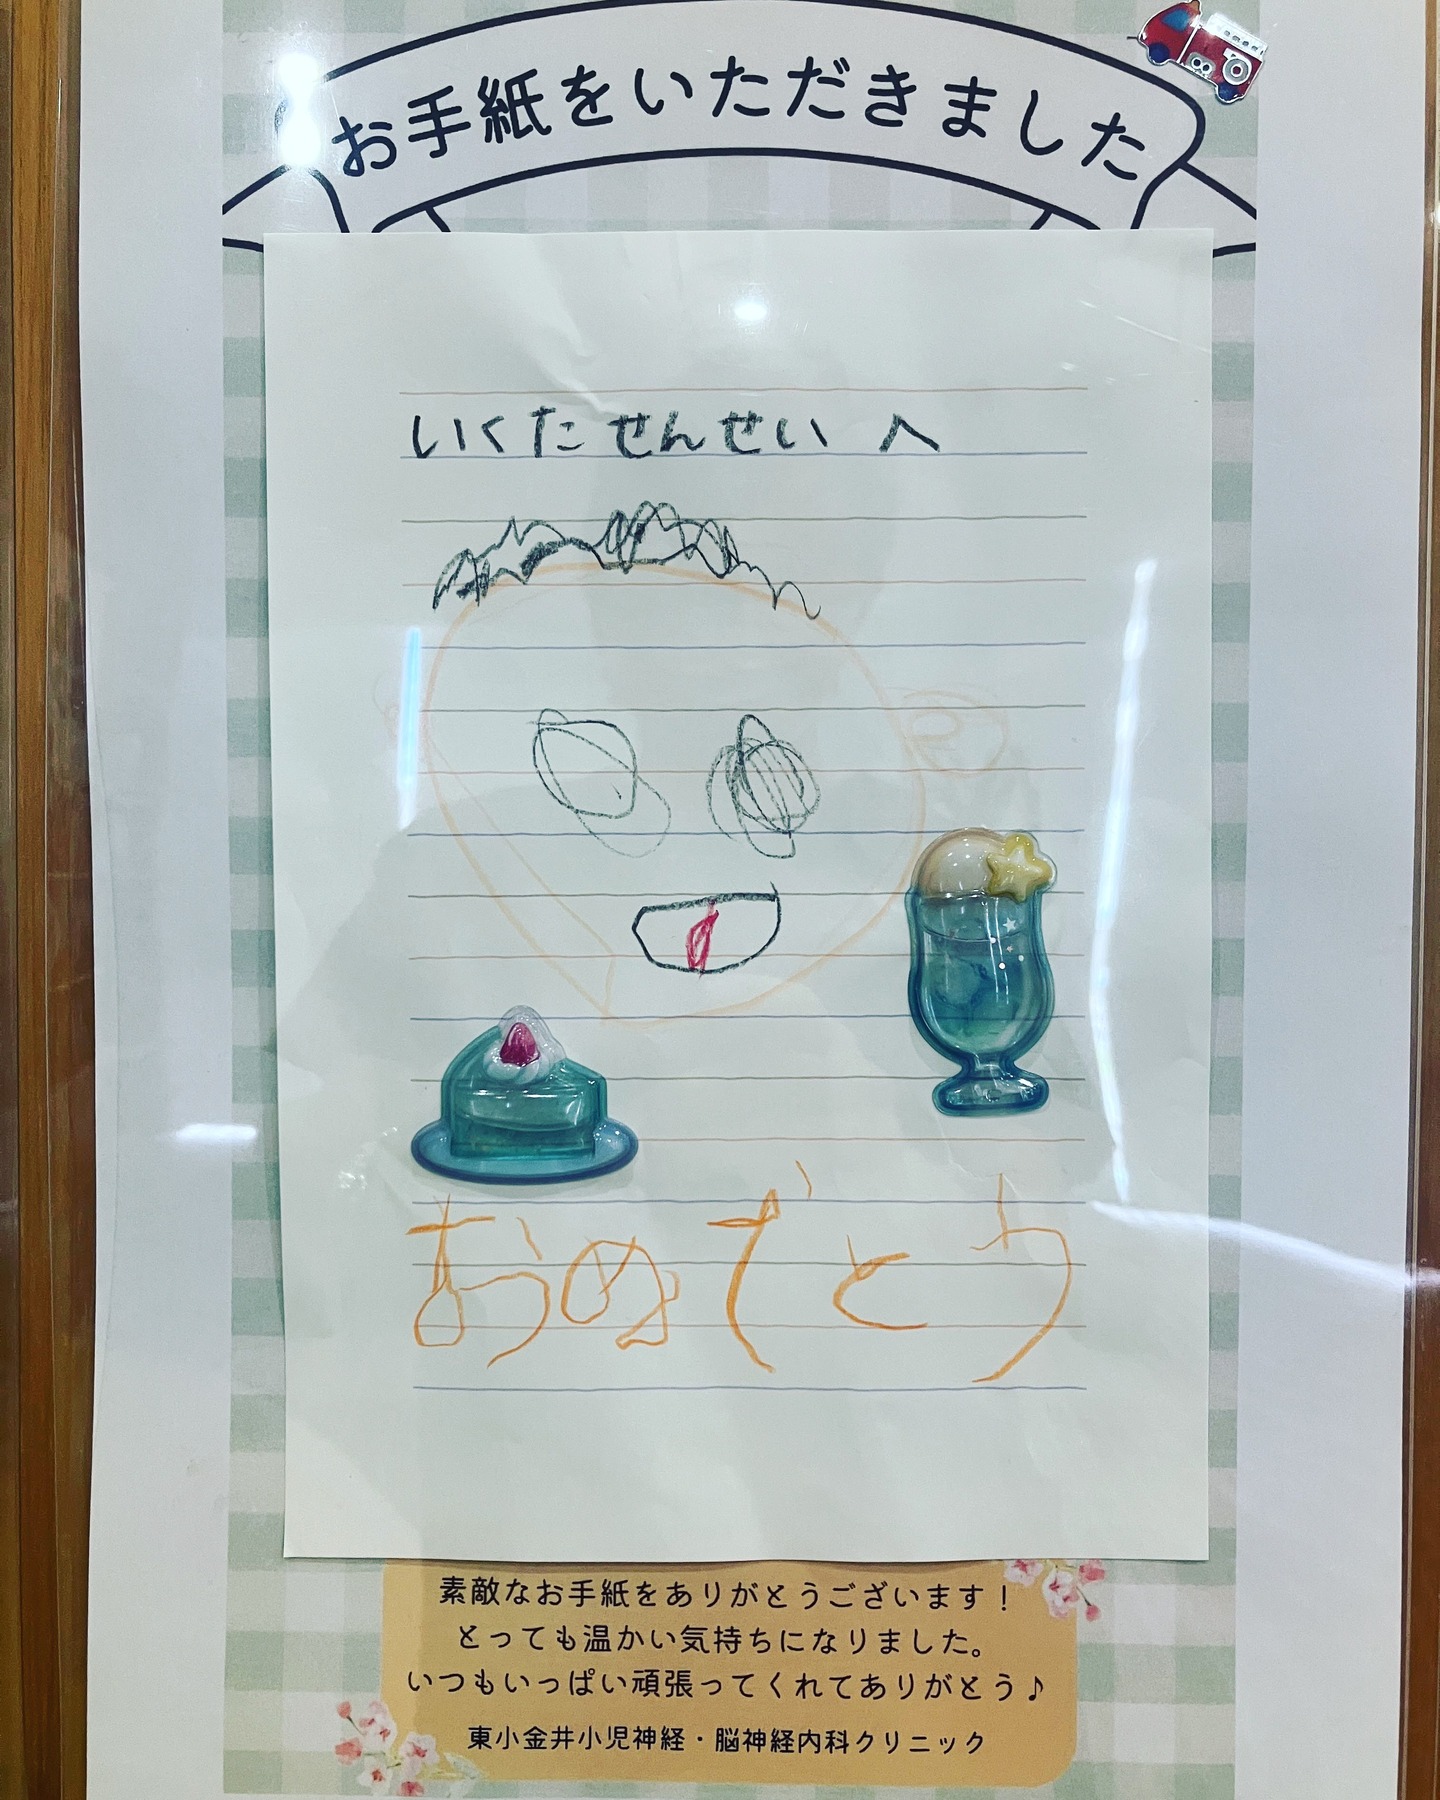 お手紙をいただきました
いくたせんせいへ
おめでとう
素敵なお手紙をありがとうございます！
とっても温かい気持ちになりました。
いつもいっぱい頑張ってくれてありがとう♪
東小金井小児神経・脳神経内科クリニック